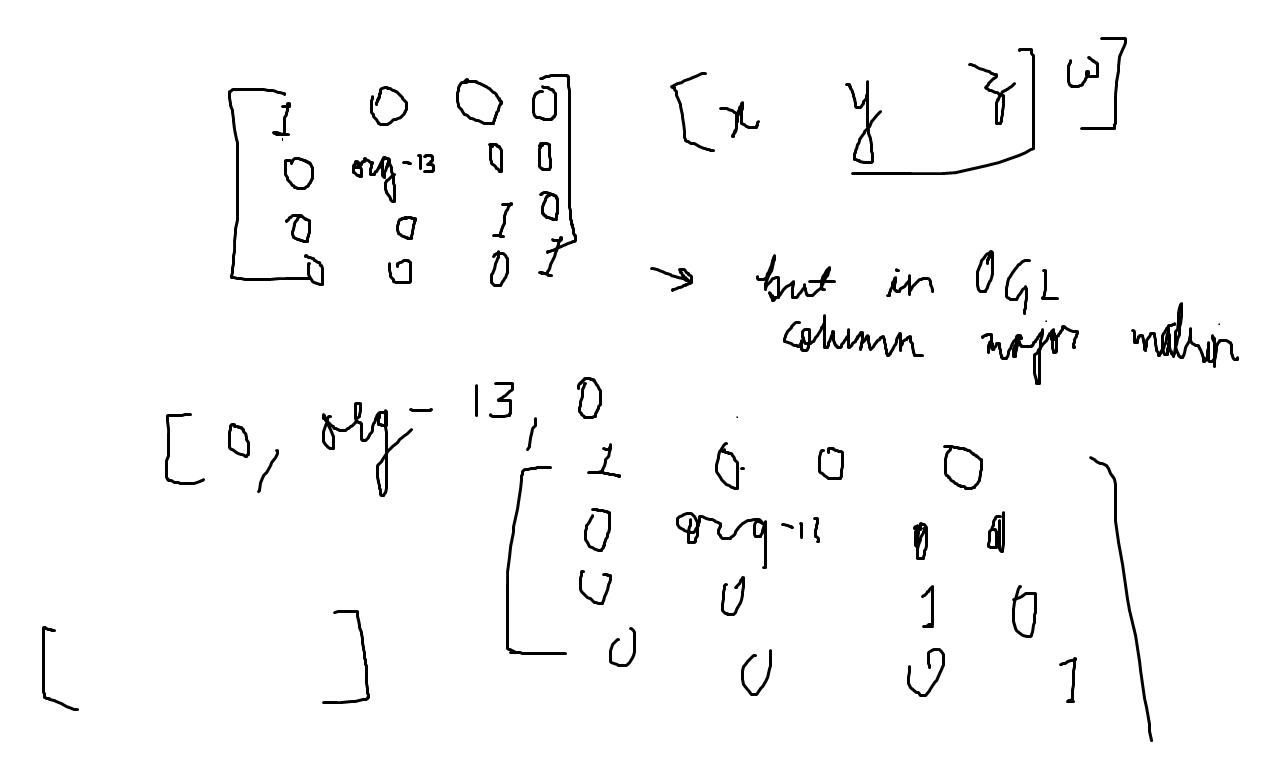 1 0 0 0 [x y z] w]
0 org-13 0 0
0 0 1 0
0 0 0 1
→ but in OGL
column major matrix
[0, org-13, 0
1 0 0 0
0 org-13 0 0
0 0 1 0
0 0 0 1
[ ]